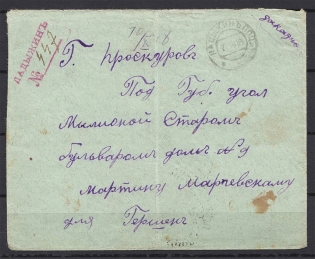 ЛАДЫЖИНЪ
№ 442
заказное
Г. Проскуровъ
Под Губ. угол
Милионой Старомъ
бульваромъ домъ №9
Мартину Марпевскому
для Гершенъ